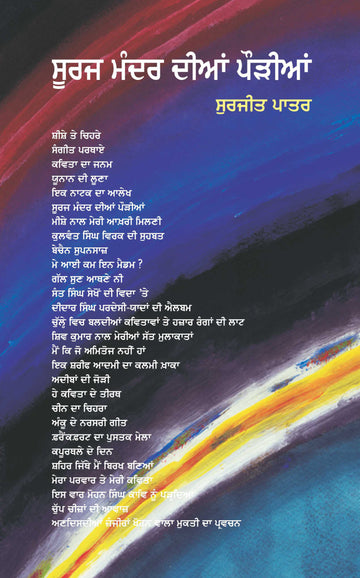 ਸੂਰਜ ਮੰਦਰ ਦੀਆਂ ਪੌੜੀਆਂ
ਸੁਰਜੀਤ ਪਾਤਰ
ਸ਼ੀਸ਼ੇ ਤੇ ਚਿਹਰੇ
ਸੰਗੀਤ ਪਰਥਾਏ
ਕਵਿਤਾ ਦਾ ਜਨਮ
ਯੂਨਾਨ ਦੀ ਲੂਣਾ
ਇਕ ਨਾਟਕ ਦਾ ਆਲੇਖ
ਸੂਰਜ ਮੰਦਰ ਦੀਆਂ ਪੌੜੀਆਂ
ਮੀਸ਼ੇ ਨਾਲ ਮੇਰੀ ਆਖ਼ਰੀ ਮਿਲਣੀ
ਕੁਲਵੰਤ ਸਿੰਘ ਵਿਰਕ ਦੀ ਸੁਹਬਤ
ਬੇਚੈਨ ਸੁਪਨਸਾਜ਼
ਮੇ ਆਈ ਕਮ ਇਨ ਮੈਡਮ ?
ਗੱਲ ਸੁਣ ਆਥਣੇ ਨੀ
ਸੰਤ ਸਿੰਘ ਸੇਖੋਂ ਦੀ ਵਿਦਾ 'ਤੇ
ਦੀਦਾਰ ਸਿੰਘ ਪਰਦੇਸੀ-ਯਾਦਾਂ ਦੀ ਐਲਬਮ
ਚੁੱਲ੍ਹੇ ਵਿਚ ਬਲਦੀਆਂ ਕਵਿਤਾਵਾਂ ਤੇ ਹਜ਼ਾਰ ਰੰਗਾਂ ਦੀ ਲਾਟ
ਸ਼ਿਵ ਕੁਮਾਰ ਨਾਲ ਮੇਰੀਆਂ ਸੱਤ ਮੁਲਾਕਾਤਾਂ
ਮੈਂ ਕਿ ਜੋ ਅਮਿਤੋਜ ਨਹੀਂ ਹਾਂ
ਇਕ ਸ਼ਰੀਫ ਆਦਮੀ ਦਾ ਕਲਮੀ ਖ਼ਾਕਾ
ਅਦੀਬਾਂ ਦੀ ਜੋੜੀ
ਹੇ ਕਵਿਤਾ ਦੇ ਤੀਰਥ
ਚੀਨ ਦਾ ਚਿਹਰਾ
ਅੰਕੂ ਦੇ ਨਰਸਰੀ ਗੀਤ
ਫ਼ਰੈਂਕਫ਼ਰਟ ਦਾ ਪੁਸਤਕ ਮੇਲਾ
ਕਪੂਰਥਲੇ ਦੇ ਦਿਨ
ਸ਼ਹਿਰ ਜਿੱਥੇ ਮੈਂ ਬਿਰਖ ਬਣਿਆਂ
ਮੇਰਾ ਪਰਵਾਰ ਤੇ ਮੇਰੀ ਕਵਿਤਾ
ਇਸ ਵਾਰ ਮੋਹਨ ਸਿੰਘ ਕਾਵਿ ਨੂੰ ਪੜ੍ਹਦਿਆਂ
ਚੁੱਪ ਚੀਜ਼ਾਂ ਦੀ ਆਵਾਜ਼
ਅਣਦਿਸਦੀਆਂ ਜ਼ੰਜੀਰਾਂ ਖੋਲ੍ਹਣ ਵਾਲਾ ਮੁਕਤੀ ਦਾ ਪ੍ਰਵਚਨ